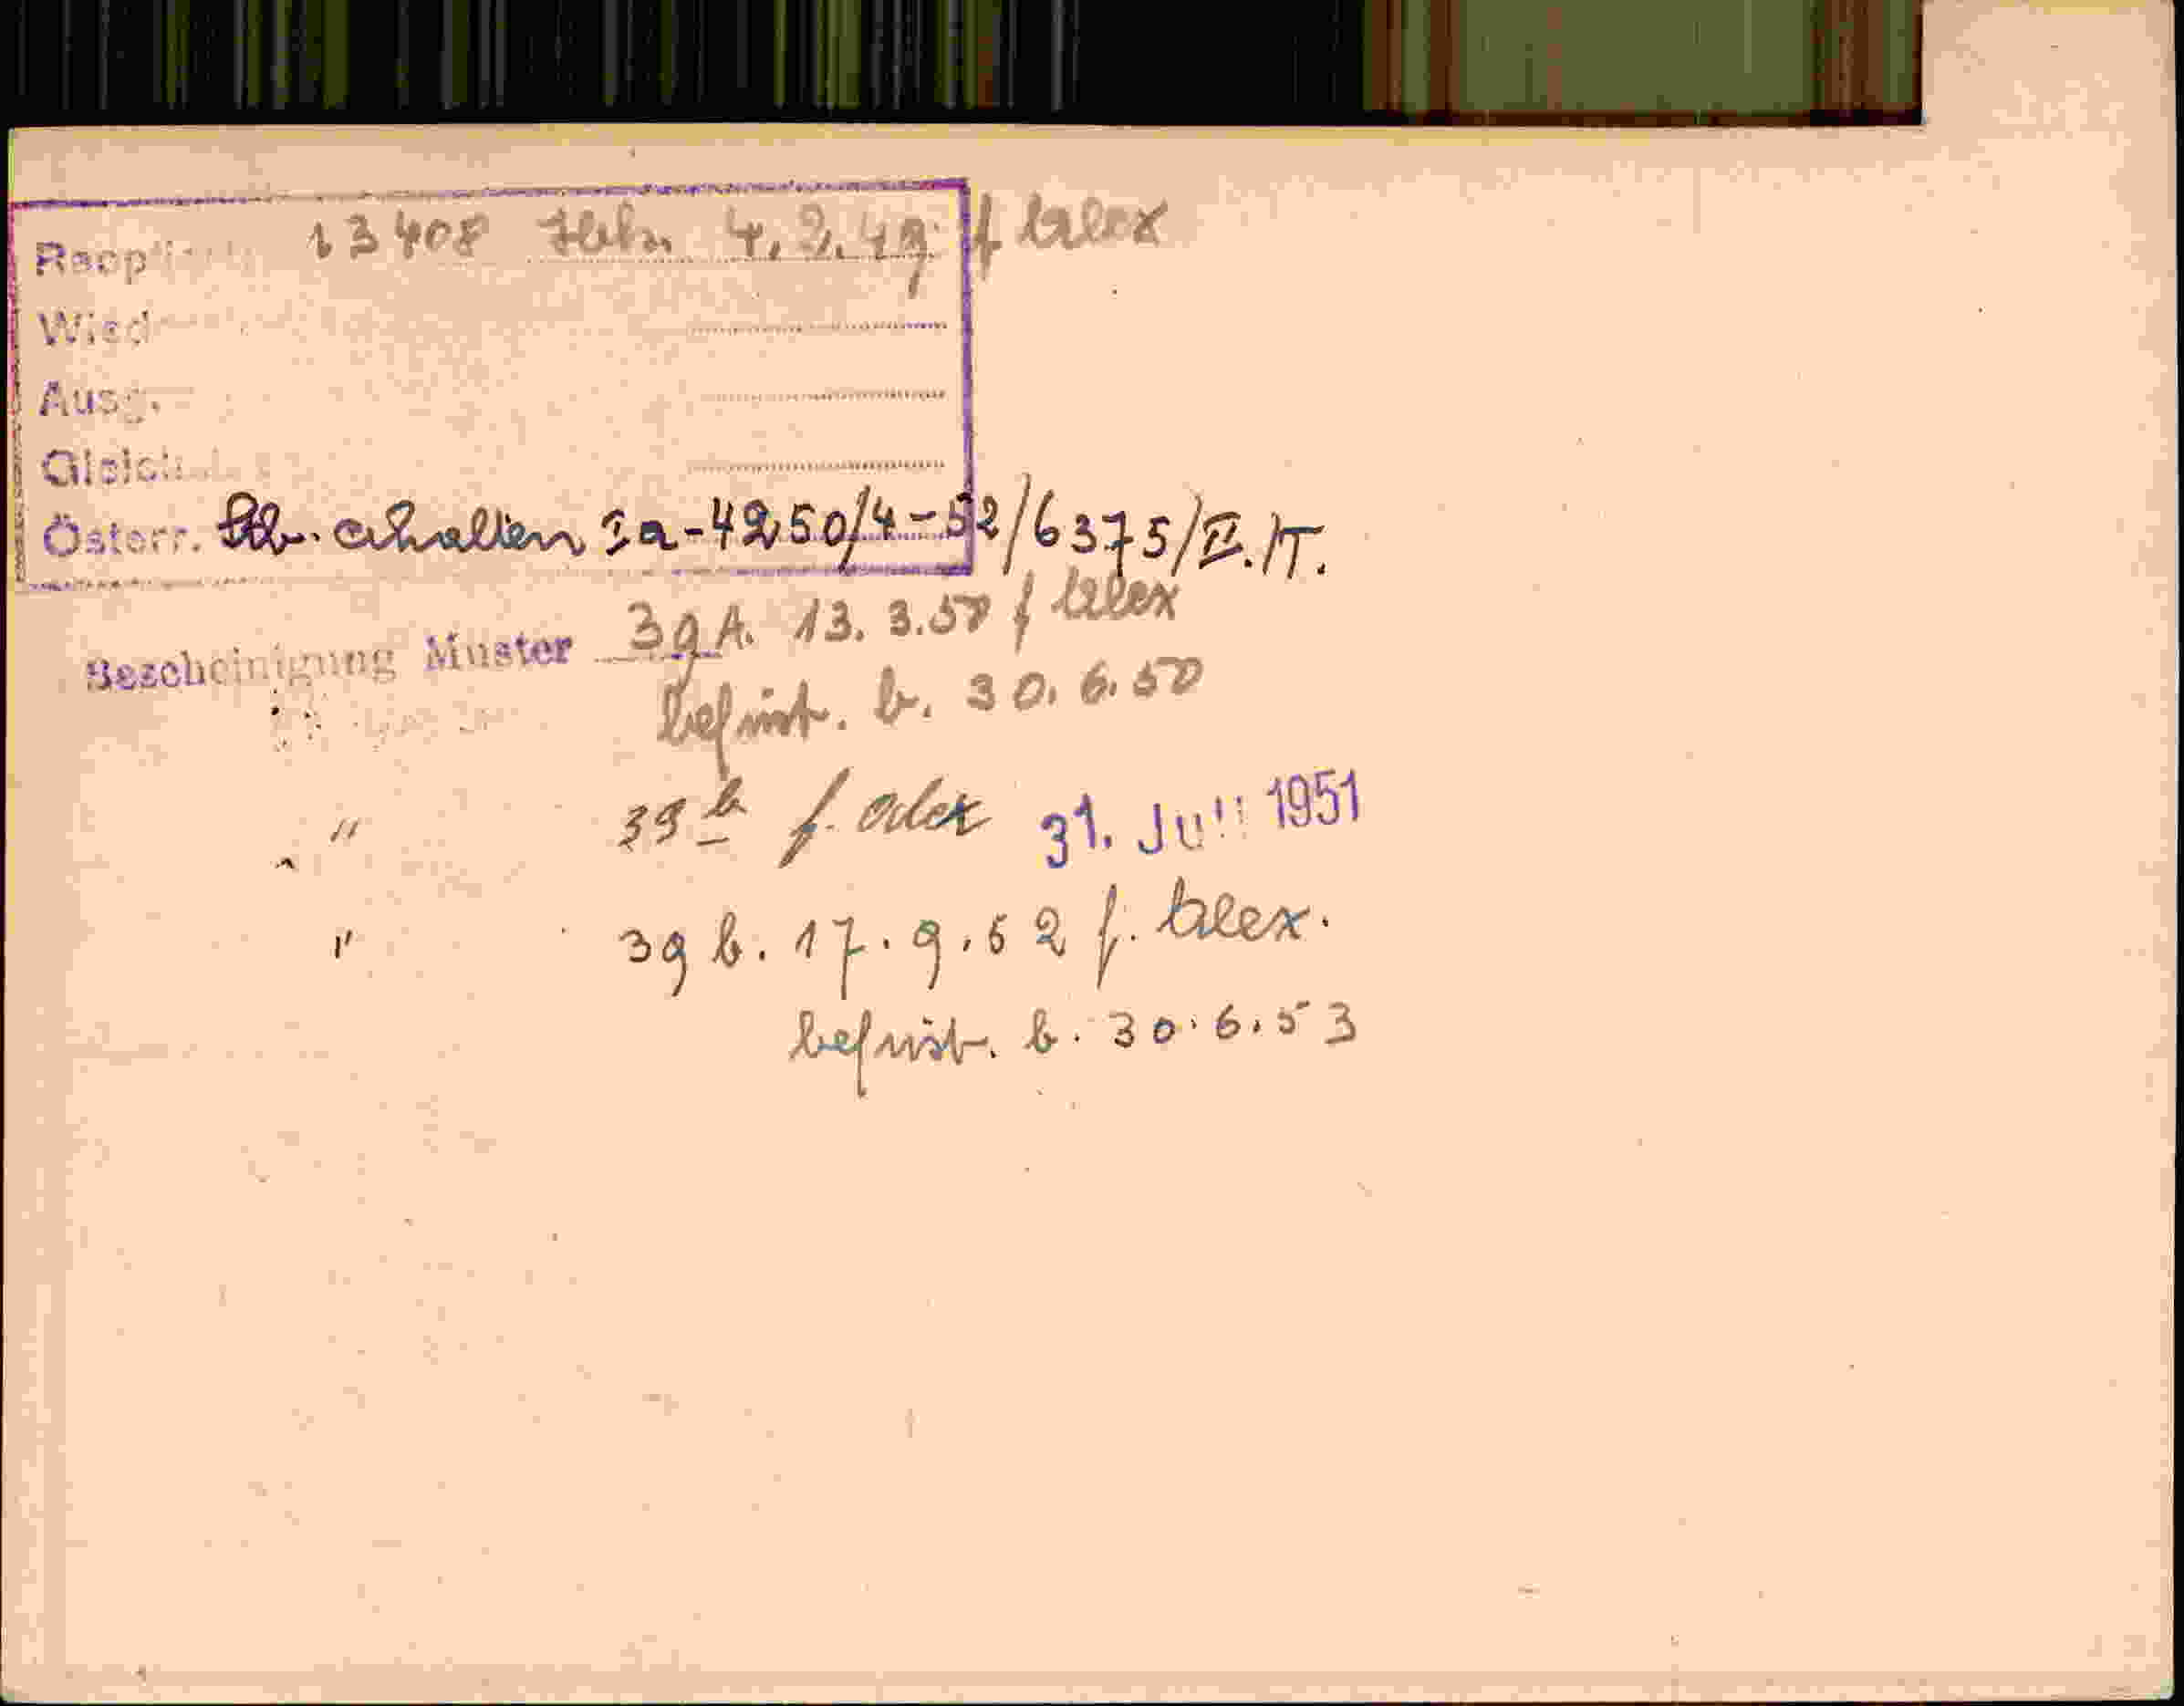 13408 4.2.49 f Alex
Wied
Ausg.
Österr. Stb. erhalten Ia-4250/4-52/6375/II./T.
Bescheinigung Muster 39 A. 13. 3.50 f Alex
befrist. b. 30. 6. 50
" 39 b f. Alex 31. Juli 1951
" 39 b. 17. 9. 52 f. Alex.
befrist. b. 30. 6. 53